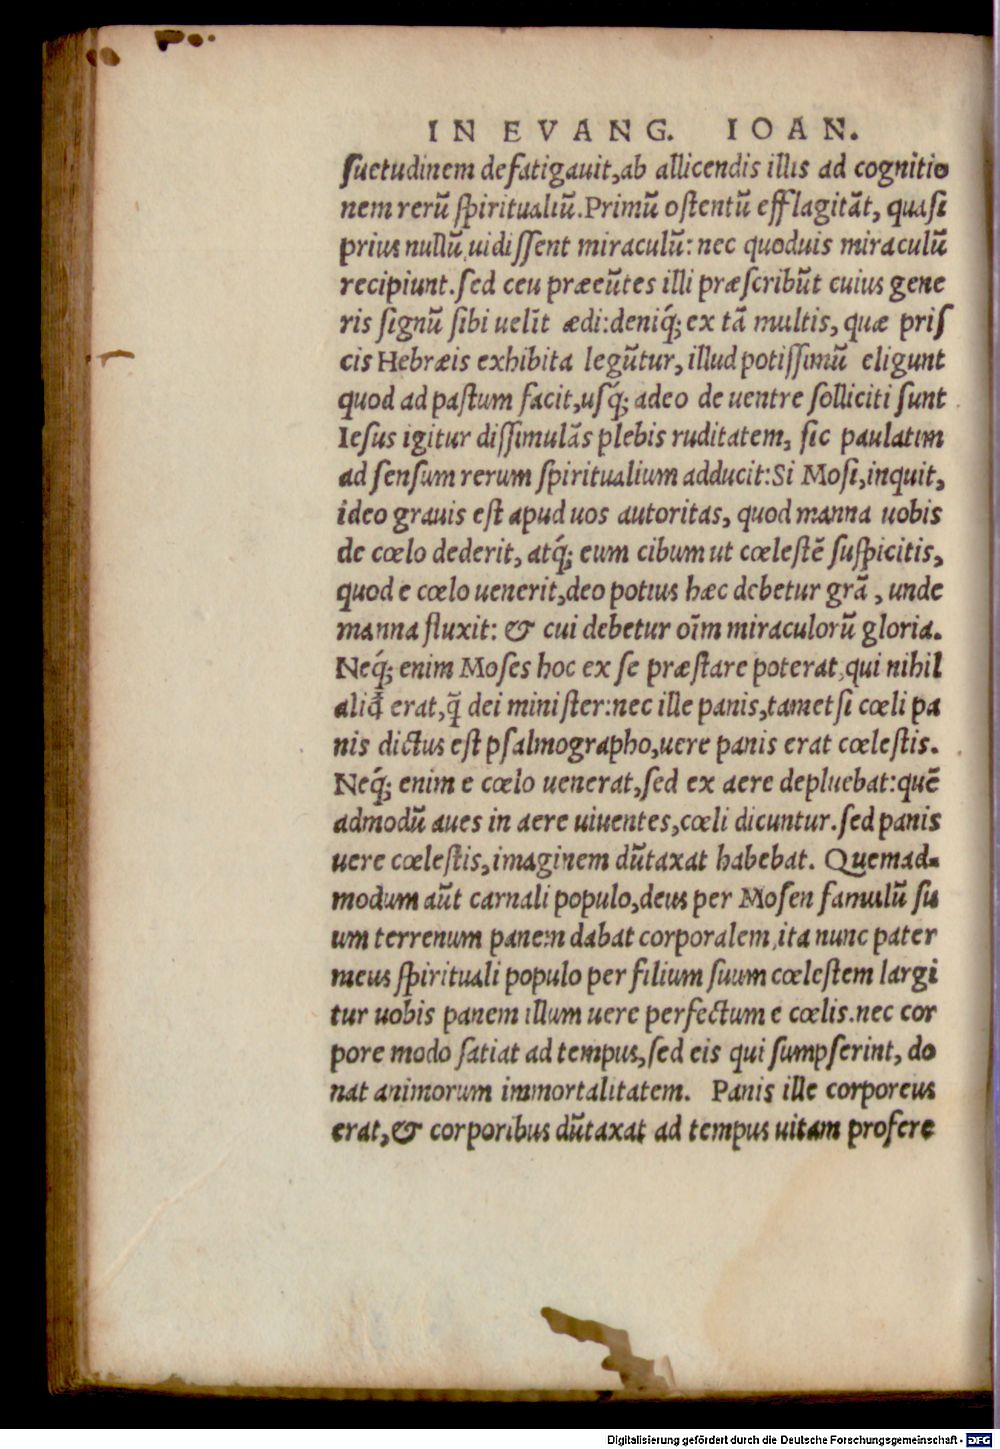 IN EVANG. IOAN.
suetudinem defatigauit, ab allicendis illis ad cognitio
nem rerũ spiritualiũ. Primũ ostentũ efflagitãt, quasi
prius nullũ uidissent miraculũ: nec quoduis miraculũ
recipiunt. sed ceu præeũtes illi præscribũt cuius gene
ris signũ sibi uelĩt ædi: deniq́; ex tã multis, quæ pris
cis Hebræis exhibita legũtur, illud potissimũ eligunt
quod ad pastum facit, usq́; adeo de uentre solliciti sunt
Iesus igitur dissimulãs plebis ruditatem, sic paulatim
ad sensum rerum spiritualium adducit: Si Mosi, inquit,
ideo grauis est apud uos autoritas, quod manna uobis
de cœlo dederit, atq́; eum cibum ut cœlestẽ suspicitis,
quod e cœlo uenerit, deo potius hæc debetur grã, unde
manna fluxit: & cui debetur oĩm miraculorũ gloria.
Neq́; enim Moses hoc ex se præstare poterat, qui nihil
aliq̃d erat, q̃ dei minister: nec ille panis, tametsi cœli pa
nis dictus est psalmographo, uere panis erat cœlestis.
Neq́; enim e cœlo uenerat, sed ex aere depluebat: quẽ
admodũ aues in aere uiuentes, cœli dicuntur. sed panis
uere cœlestis, imaginem dũtaxat habebat. Quemad-
modum aũt carnali populo, deus per Mosen famulũ su
um terrenum panem dabat corporalem, ita nunc pater
meus spirituali populo per filium suum cœlestem largi
tur uobis panem illum uere perfectum e cœlis. nec cor
pore modo satiat ad tempus, sed eis qui sumpserint, do
nat animorum immortalitatem. Panis ille corporeus
erat, & corporibus dũtaxat ad tempus uitam profere
Digitalisierung gefördert durch die Deutsche Forschungsgemeinschaft - DFG